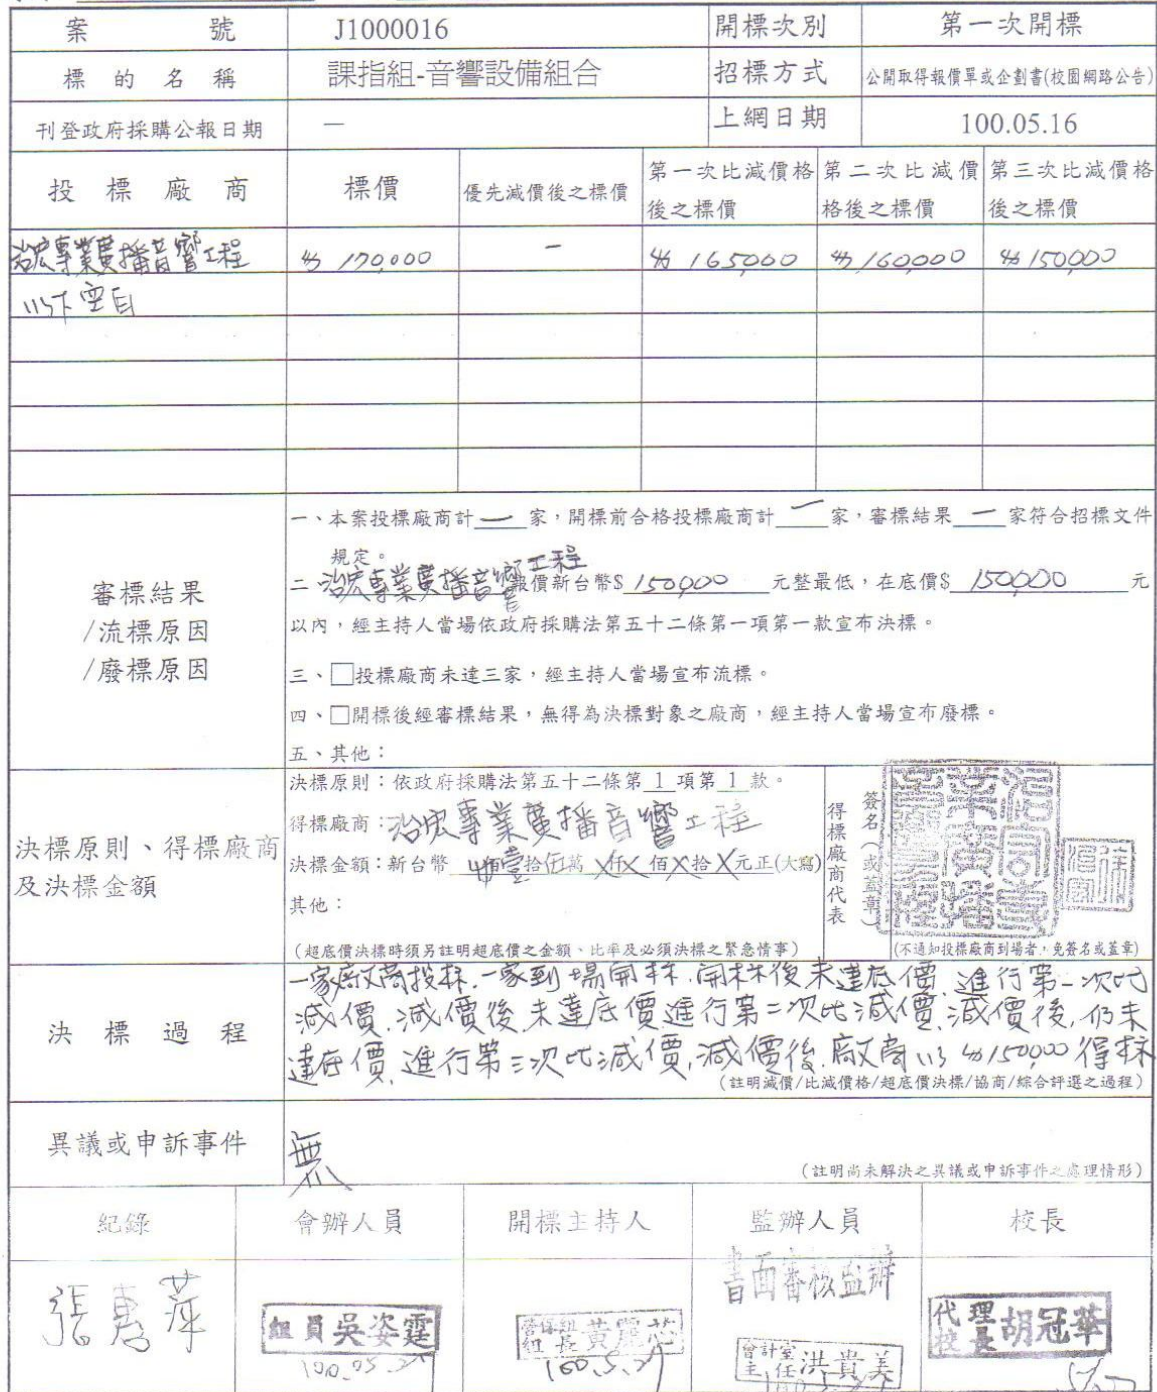 案號 J1000016 開標次別 第一次開標
標的名稱 課指組-音響設備組合 招標方式 公開取得報價單或企劃書(校園網路公告)
刊登政府採購公報日期 — 上網日期 100.05.16
投標廠商 標價 優先減價後之標價 第一次比減價格後之標價 第二次比減價格後之標價 第三次比減價格後之標價
治宏專業廣播音響工程 170,000 — 165,000 160,000 150,000
以下空白
審標結果
/流標原因
/廢標原因
一、本案投標廠商計 一 家,開標前合格投標廠商計 一 家,審標結果 一 家符合招標文件
規定。
二 治宏專業廣播音響工程 報價新台幣$ 150,000 元整最低,在底價$ 150,000 元
以內,經主持人當場依政府採購法第五十二條第一項第一款宣布決標。
三、□投標廠商未達三家,經主持人當場宣布流標。
四、□開標後經審標結果,無得為決標對象之廠商,經主持人當場宣布廢標。
五、其他:
決標原則、得標廠商
及決標金額
決標原則:依政府採購法第五十二條第 1 項第 1 款。
得標廠商:治宏專業廣播音響工程
決標金額:新台幣 壹拾伍萬 X仟X佰X拾X元正(大寫)
其他:
(超底價決標時須另註明超底價之金額、比率及必須決標之緊急情事)
得標廠商代表
簽名(或蓋章)
(不通知投標廠商到場者,免簽名或蓋章)
決標過程
一家廠商投标.一家到場開标.開标後未達底價,進行第一次比
減價,減價後,未達底價進行第二次比減價,減價後,仍未
達底價,進行第三次比減價,減價後,廠商以 150,000 得标
(註明減價/比減價格/超底價決標/協商/綜合評選之過程)
異議或申訴事件 無
(註明尚未解決之異議或申訴事件之處理情形)
紀錄 會辦人員 開標主持人 監辦人員 校長
書面審核監辦
張惠萍
組員吳姿霆
100.05.27
組長黃麗芯
100.5.27
會計室主任洪貴美
代理校長胡冠華
5/27